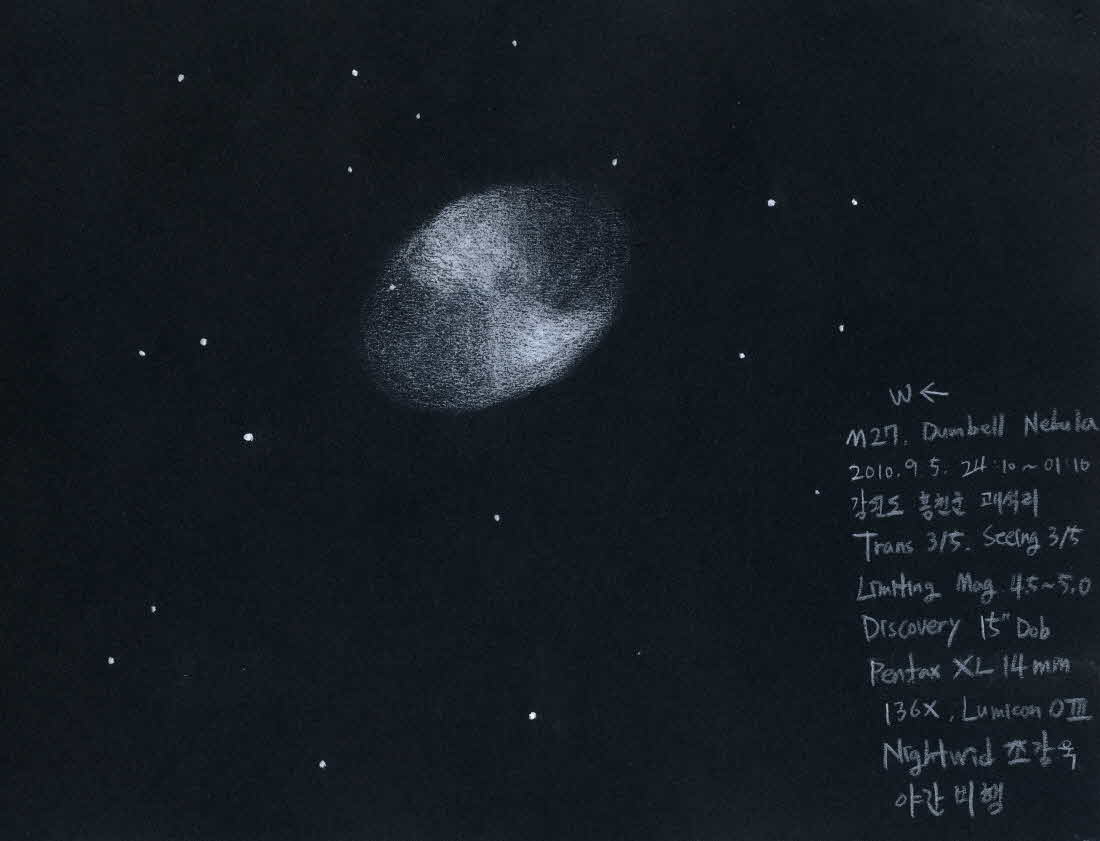 W ←
M27. Dumbell Nebula
2010. 9. 5. 24:10~01:10
강원도 홍천군 괘석리
Trans 3/5. Seeing 3/5
Limiting Mag 4.5~5.0
Discovery 15" Dob
Pentax XL 14mm
136X, Lumicon OⅢ
Nightwid 조강욱
야간비행